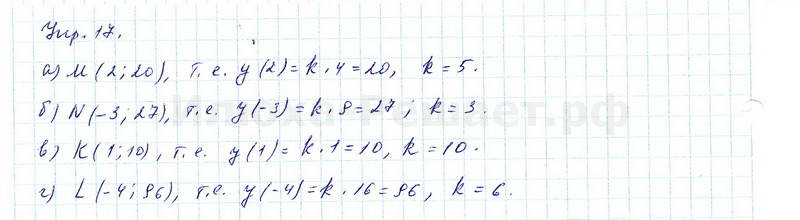 Упр. 17.
а) M (2; 20), т.е. y(2) = k · 4 = 20, k = 5.
б) N (-3; 27), т.е. y(-3) = k · 9 = 27; k = 3.
в) K (1; 10), т.е. y(1) = k · 1 = 10, k = 10.
г) L (-4; 96), т.е. y(-4) = k · 16 = 96, k = 6.